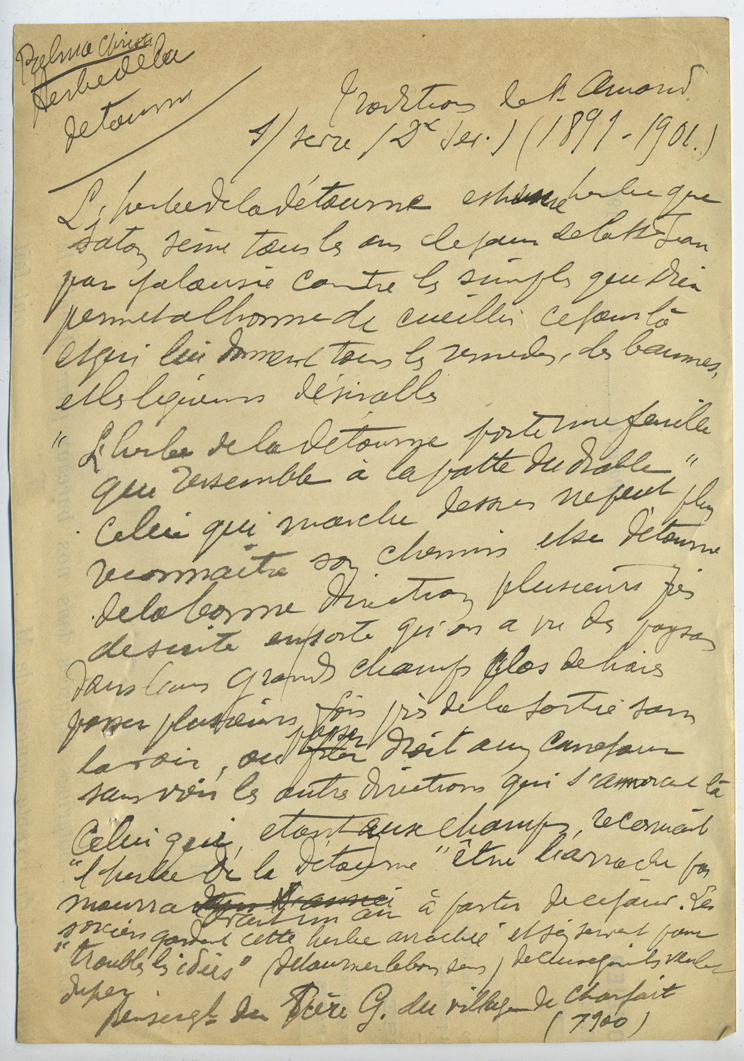 Palma Christi
Herbe de la
détourne
Traditions de St Amand
1/ serie / 2e Ser.) (1891-1901.)
L'herbe de la détourne est une herbe que
Satan sème tous les ans le jour de la St Jean
par jalousie contre les simples que Dieu
permet a l'homme de cueillir ce jour là
et qui lui donnent tous les remedes, les baumes,
et les liqueurs désirables
" L'herbe de la détourne porte une feuille
qui ressemble à la patte du diable "
Celui qui marche dessus ne peut plus
reconnaitre son chemin et se détourne
de la bonne direction plusieurs fois
de suite en sorte qu'on a vu des paysans
dans leurs grands champs clos de haies
passer plusieurs fois près de la sortie sans
la voir, ou passer droit aux carrefours
sans voir les autres directions qui s'amorcent là
Celui qui, etant aux champs, reconnait
" l'herbe de la détourne " et ne l'arrache pas
mourra avant un an à partir de ce jour. Les
sorciers gardent cette herbe arrachée et s'en servent pour
" troubler les idées " (détourner le bon sens) de ceux qu'ils veulent
duper
Renseigt du Père G. du village de Charfait
(1900)